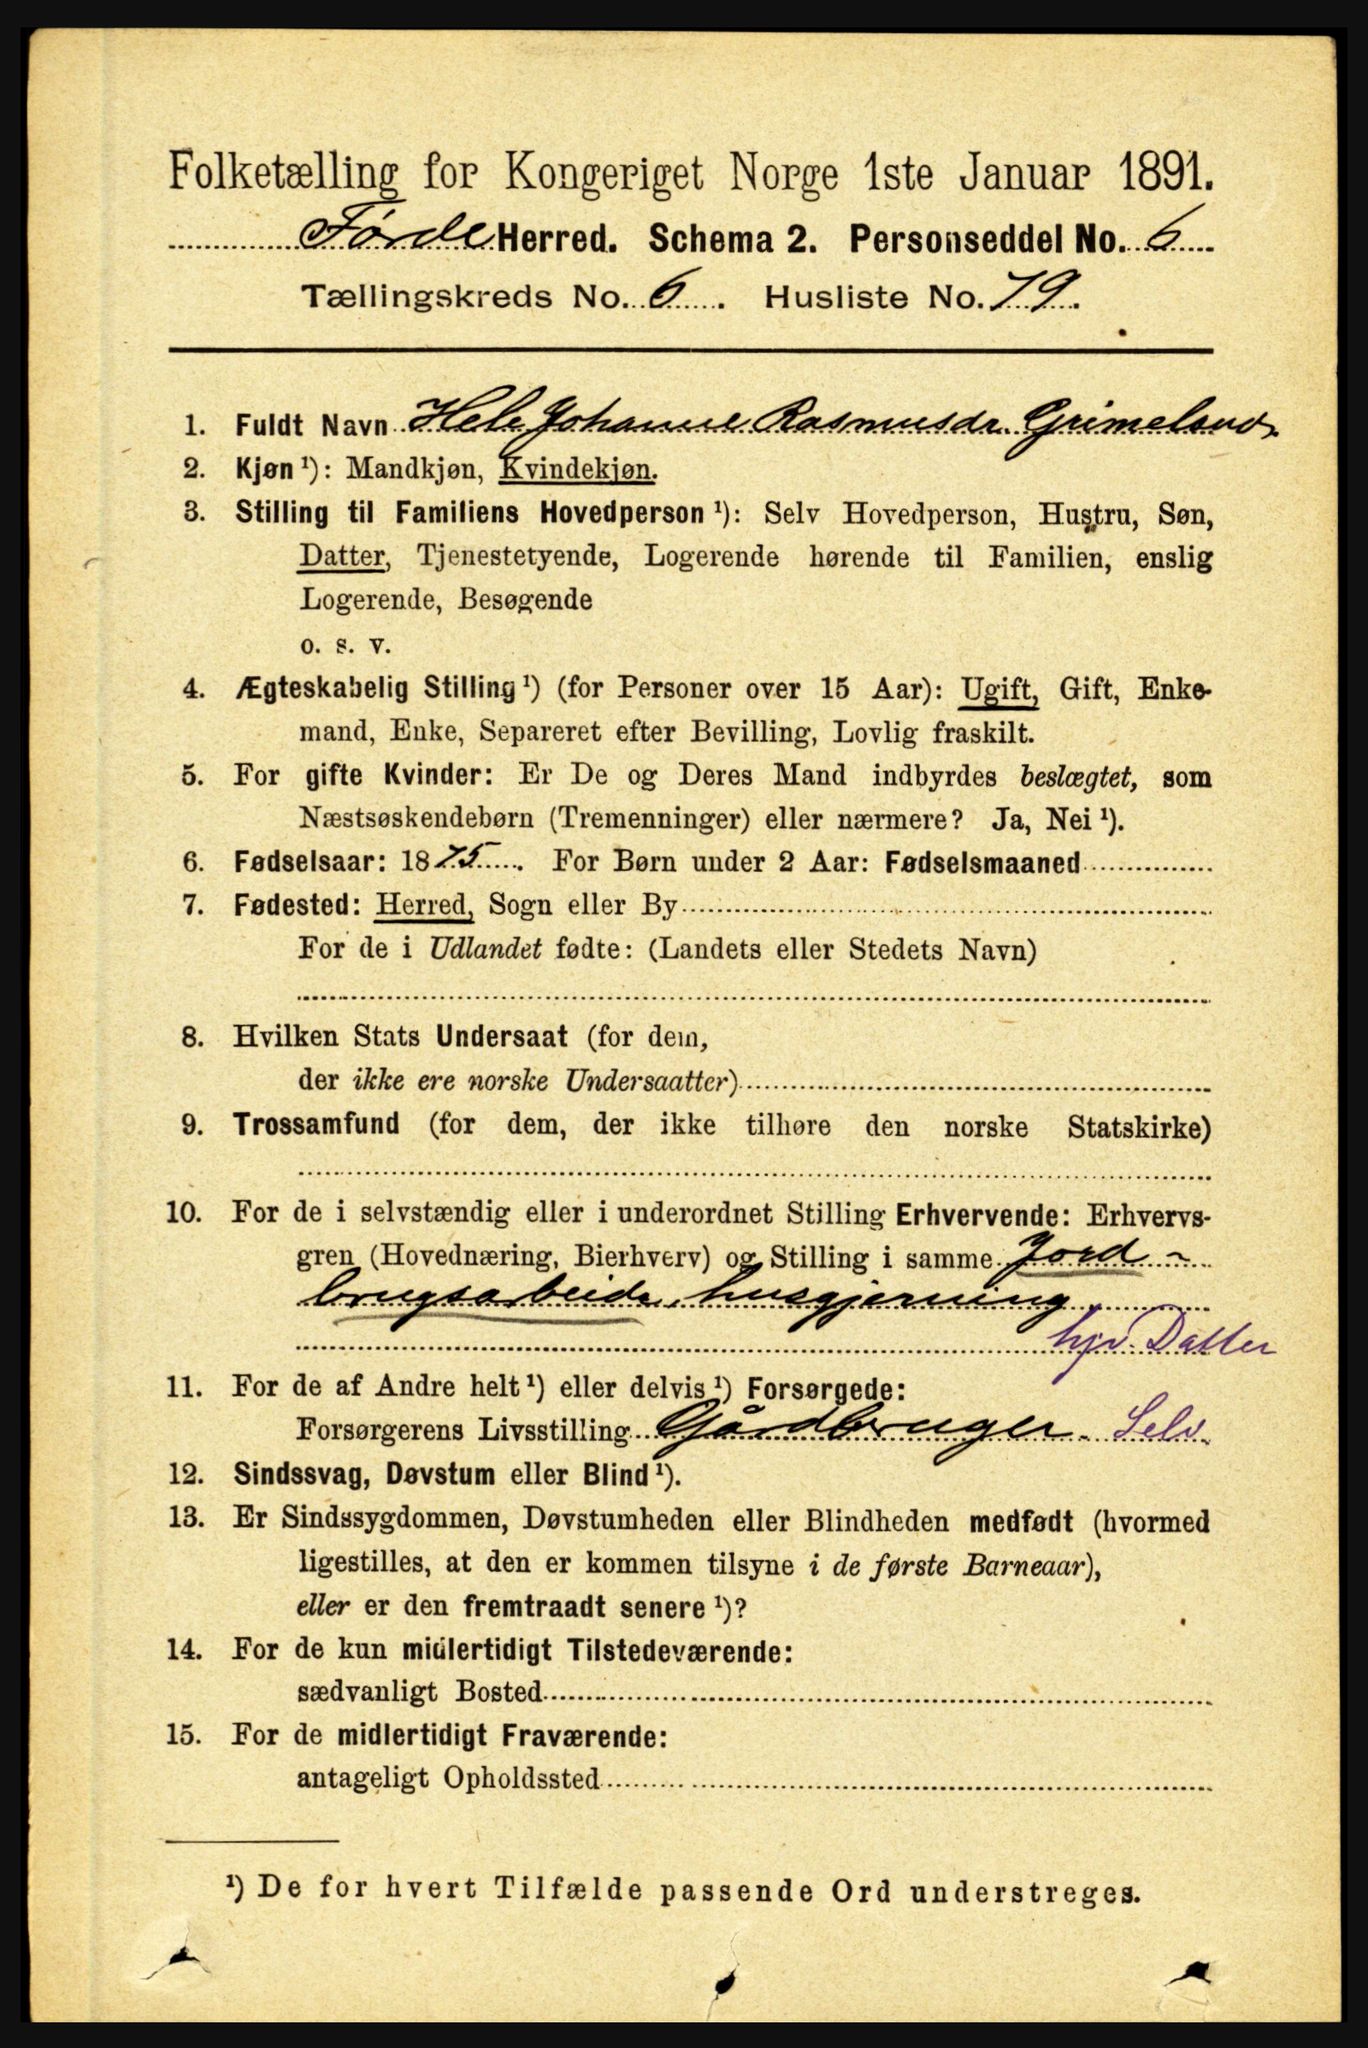 Folketælling for Kongeriget Norge 1ste Januar 1891.
Førde Herred. Schema 2. Personseddel No. 6
Tællingskreds No. 6. Husliste No. 79.
1. Fuldt Navn Hele Johanne Rasmusdr. Grimelsnd
2. Kjøn ¹): Mandkjøn, Kvindekjøn.
3. Stilling til Familiens Hovedperson ¹): Selv Hovedperson, Hustru, Søn,
Datter, Tjenestetyende, Logerende hørende til Familien, enslig
Logerende, Besøgende
o. s. v.
4. Ægteskabelig Stilling ¹) (for Personer over 15 Aar): Ugift, Gift, Enke-
mand, Enke, Separeret efter Bevilling, Lovlig fraskilt.
5. For gifte Kvinder: Er De og Deres Mand indbyrdes beslægtet, som
Næstsøskendebørn (Tremenninger) eller nærmere? Ja, Nei ¹).
6. Fødselsaar: 1875. For Børn under 2 Aar: Fødselsmaaned
7. Fødested: Herred, Sogn eller By
For de i Udlandet fødte: (Landets eller Stedets Navn)
8. Hvilken Stats Undersaat (for dem,
der ikke ere norske Undersaatter)
9. Trossamfund (for dem, der ikke tilhøre den norske Statskirke)
10. For de i selvstændig eller i underordnet Stilling Erhvervende: Erhvervs-
gren (Hovednæring, Bierhverv) og Stilling i samme Jord-
brugsarbeide, husgjerning
hjv. Datter
11. For de af Andre helt ¹) eller delvis ¹) Forsørgede:
Forsørgerens Livsstilling Gårdbruger. Selv.
12. Sindssvag, Døvstum eller Blind ¹).
13. Er Sindssygdommen, Døvstumheden eller Blindheden medfødt (hvormed
ligestilles, at den er kommen tilsyne i de første Barneaar),
eller er den fremtraadt senere ¹)?
14. For de kun midlertidigt Tilstedeværende:
sædvanligt Bosted
15. For de midlertidigt Fraværende:
antageligt Opholdssted
¹) De for hvert Tilfælde passende Ord understreges.